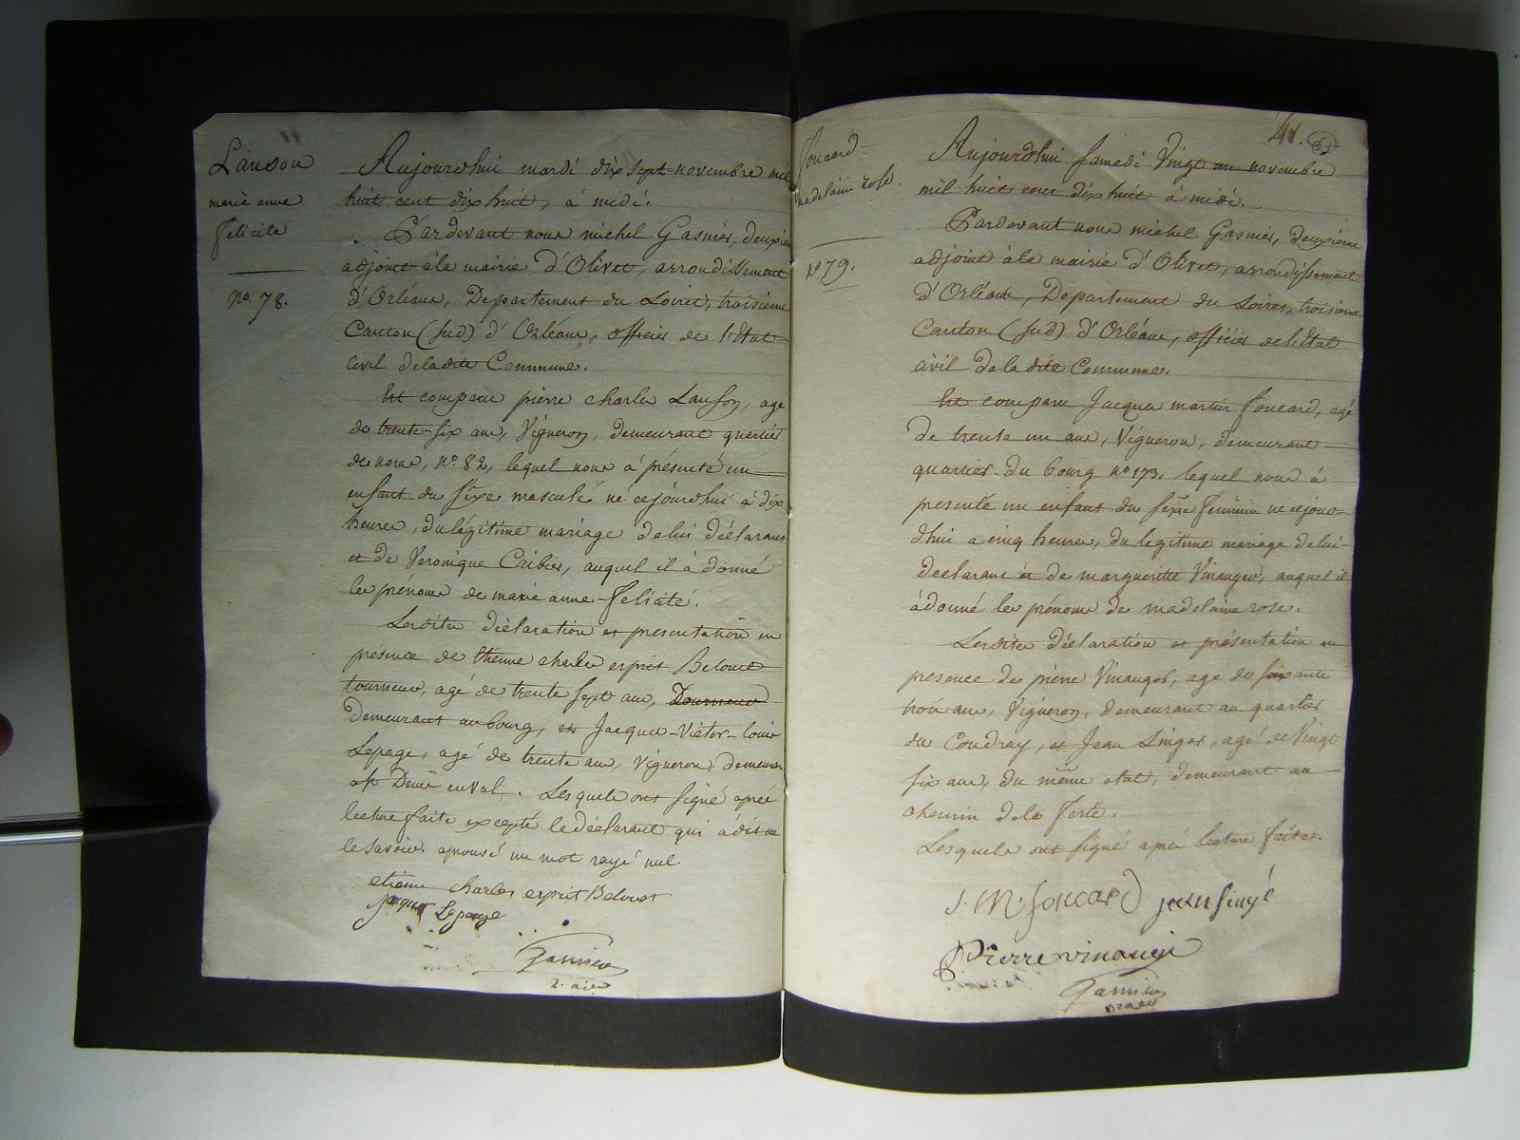 Lanson
marie anne
félicité
No. 78.
Aujourdhui mardi dix sept novembre mil
huit cent dix huit, à midi.
Pardevant nous michel Gasnier, deuxième
adjoint à la mairie d'Olivet, arrondissement
d'Orléans, Departement du Loiret, troisième
Canton (sud) d'Orléans, officier de l'Etat
Civil de la dite Commune.
Est comparu pierre charles Lanson, age
de trente-six ans, Vigneron, demeurant quartier
de nous, no. 82, lequel nous à présenté un
enfant du sexe masculé né cejourdhui à dix
heures, du légitime mariage de lui déclarant
et de Veronique Caibier, auquel il à donné
les prénoms de marie anne félicité.
Lesdites déclaration et presentation en
présence de Etienne charles esprit Belouet
tourneur, agé de trente sept ans, Tourneur
Demeurant au bourg, et Jacques-Victor-louis
Lepage, agé de trente ans, Vigneron, demeurant
st Denis en Val. Lesquels ont signé après
lecture faite excepté le déclarant qui à dit ne
le savoir. aprouvé un mot rayé nul
etienne charles esprit Belouet
jacques Lepage
Gasnier
2. ad
41.
foucard
madelaine rose.
No 79.
Aujourdhui samedi Vingt un novembre
mil huit cent dix huit à midi.
Pardevant nous michel Gasnier, deuxième
adjoint à la mairie d'Olivet, arrondissement
d'Orléans, Departement du Loiret, troisieme
Canton (sud) d'Orléans, officier de l'Etat
civil de la dite Commune.
Est comparu Jacques martin foucard, agé
de trente un ans, Vigneron, demeurant
quartier du bourg no 173, lequel nous à
presenté un enfant du sexe féminin né cejour-
dhui a cinq heures, du legitime mariage de lui
declarant et de margueritte Vinauger, auquel il
à donné les prénoms de madelaine rose.
Lesdites déclaration et présentation en
presence de pierre Vinauger, age de soixante
trois ans, Vigneron, demeurant au quartier
du Coudray, et Jean Singer, agé de Vingt
six ans, du même etat, demeurant au
chemin de la ferté.
Lesquels ont signé après lecture faite.
J. M. foucard jean singé
Pierre vinaugé
Gasnier